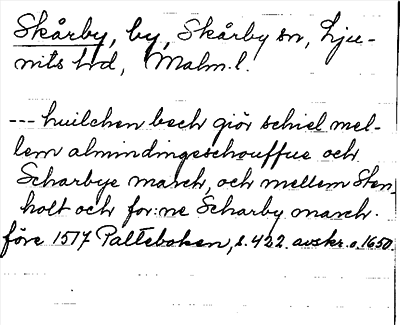 Skårby, by, Skårby sn, Lju-
nits hd, Malm. l.
--- huilchen bech giör schiel mel-
lem almindingsschouffue och
Scharbye march, och mellem Sten-
holt och for:ne Scharby march.
före 1517 Palteboken, s. 422. avskr. o. 1650.